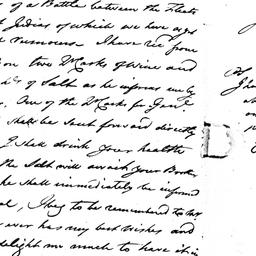 of a Battle between the Fleets
t Indies of which we have agt
t Rumours. I have recd from
on two Casks of Wine and
hds of Salt as he informs me by
s. One of the Casks for Genl
shall be sent forward directly
I shall drink your health
the Salt will await your Order
he shall immediately be informed
al, I beg to be remembered to
ever has my best wishes and
delight me much to have it in
D